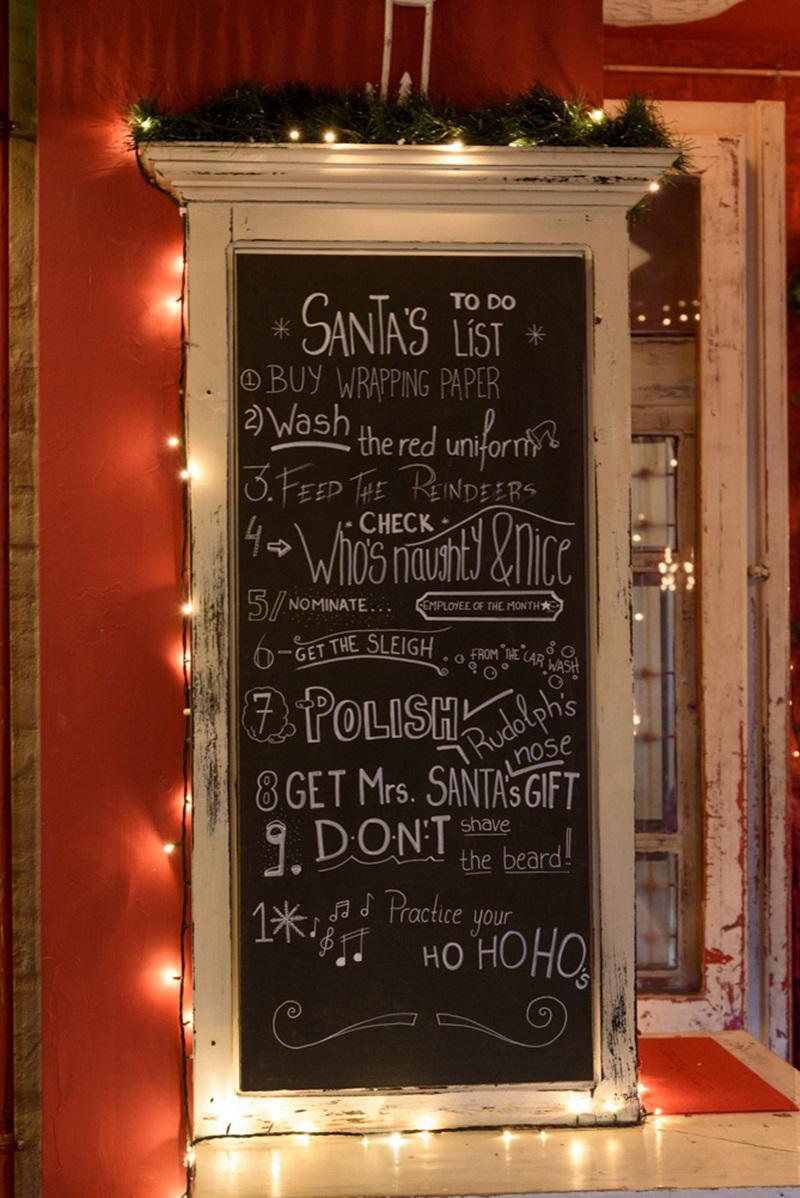 SANTA'S TO DO LIST
① BUY WRAPPING PAPER
2) Wash the red uniform
3. FEED THE REINDEERS
4 → CHECK
WHO'S naughty & NICE
5/ NOMINATE... EMPLOYEE OF THE MONTH★
6 - GET THE SLEIGH FROM "THE" CAR WASH
7 - POLISH Rudolph's nose
8 GET Mrs. SANTA's GIFT
9. D·O·N'T shave the beard!
1* Practice your
HO HO HO's